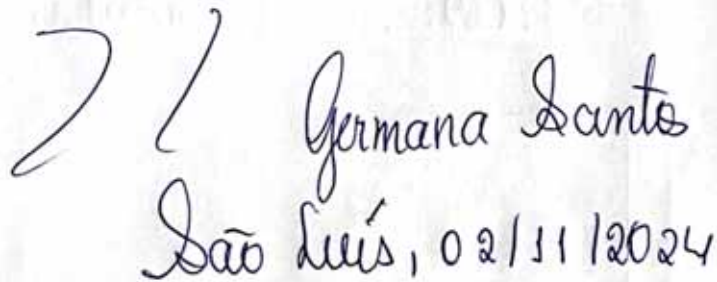 Germana Santos
São Luís, 02/11/2024